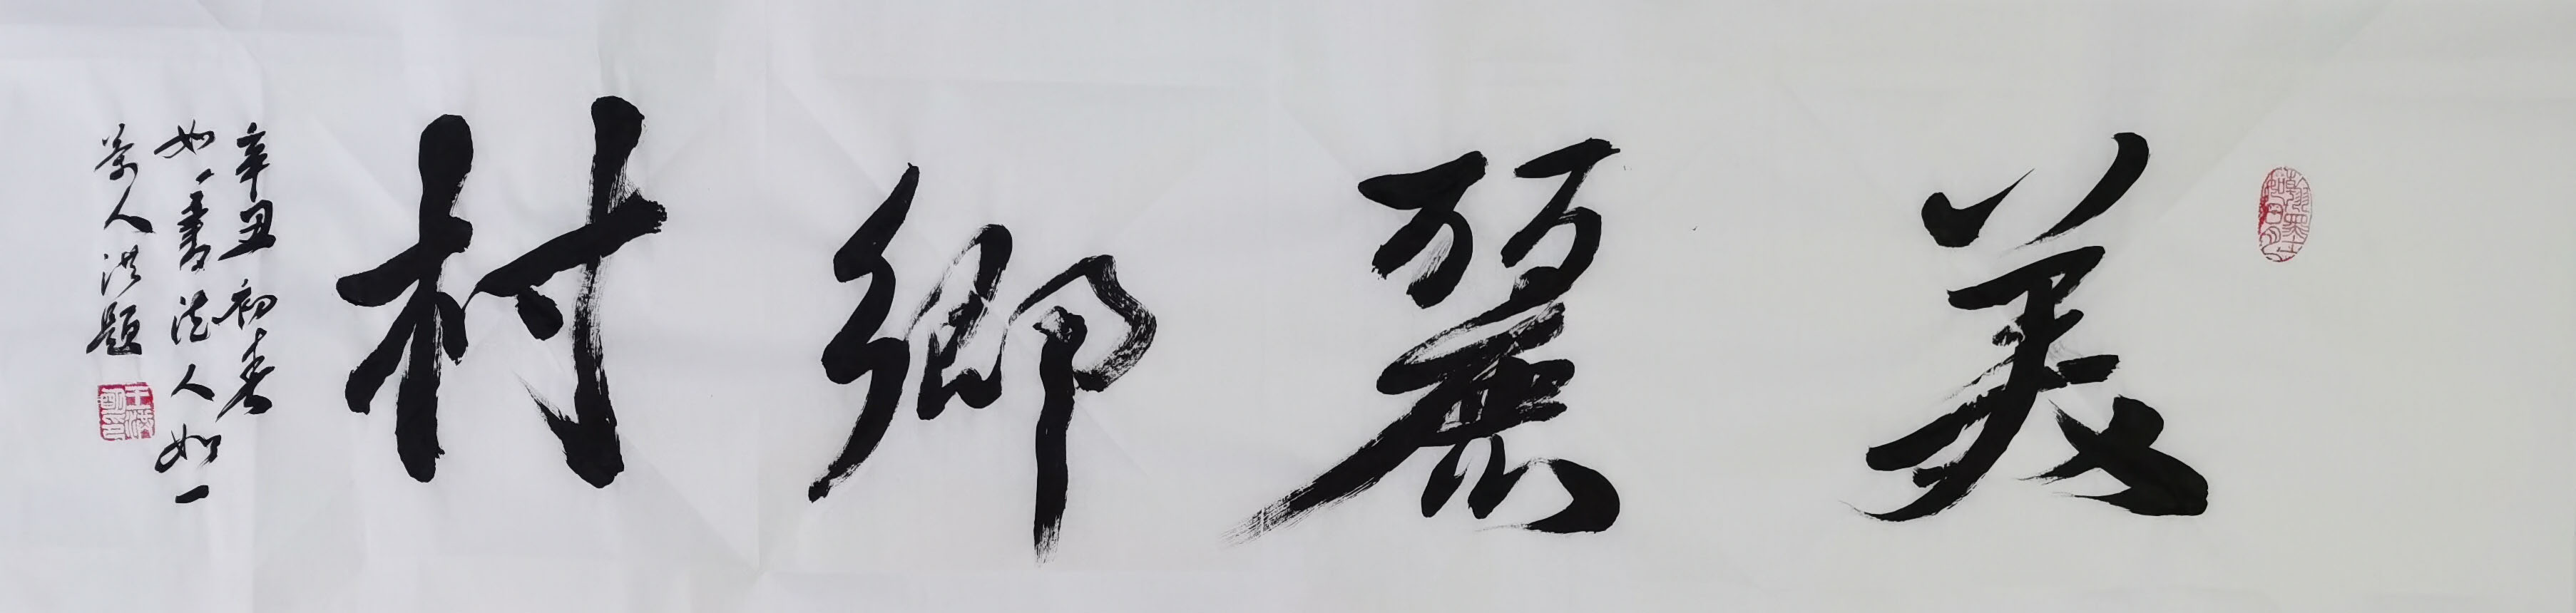 美麗鄉村
辛丑初春
如一書法人如一
人洪題